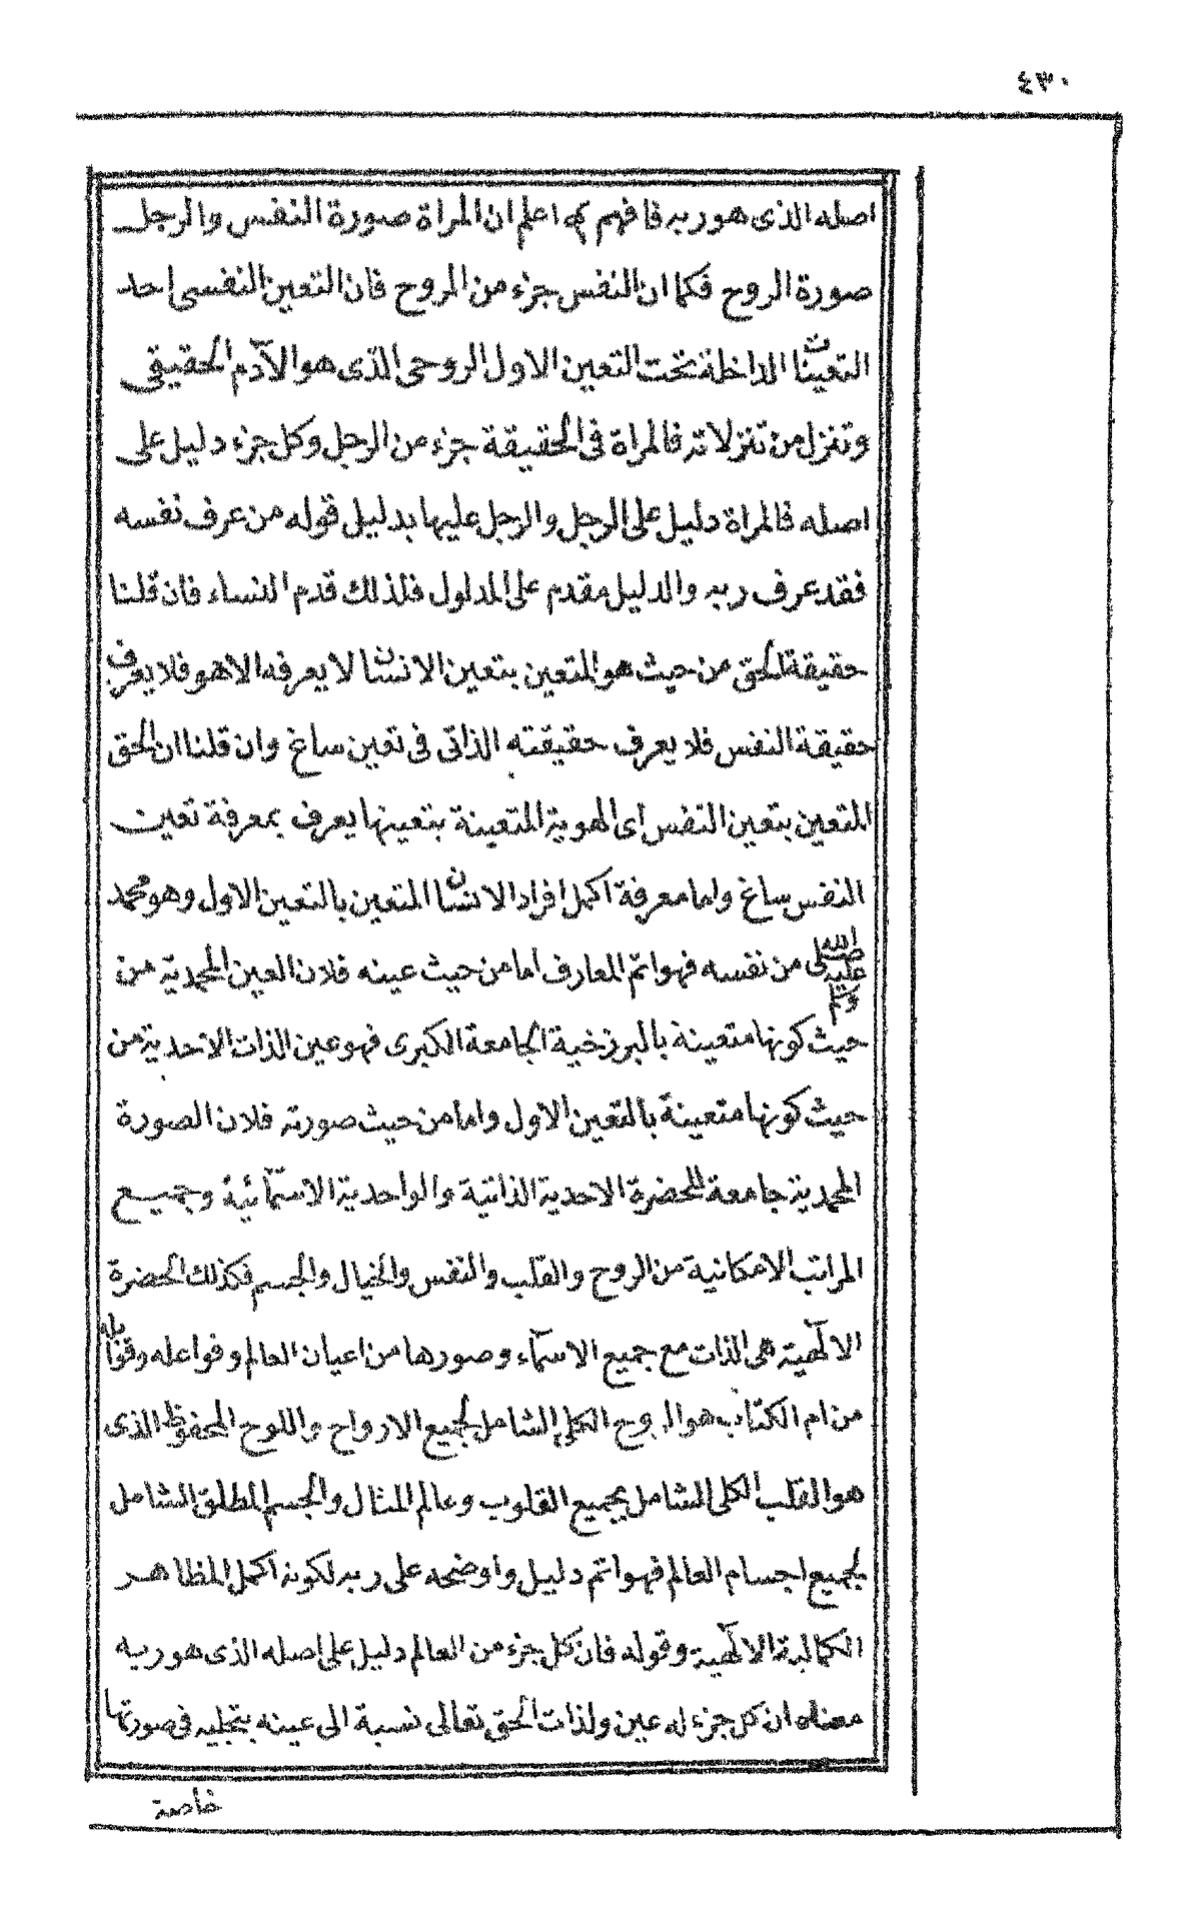 ٤٣٠
اصله الذى هو ربه فافهم اعلم ان المراة صورة النفس والرجل
صورة الروح فكما ان النفس جزء من الروح فان التعين النفسى احد
التعينات الداخلة تحت التعين الاول الروحى الذى هو الآدم الحقيقى
وتنزل من تنزلاته فالمراة فى الحقيقة جزء من الرجل وكل جزء دليل على
اصله فالمراة دليل على الرجل والرجل عليها بدليل قوله من عرف نفسه
فقد عرف ربه والدليل مقدم على المدلول فلذلك قدم النساء فان قلنا
حقيقة الحق من حيث هو المتعين بتعين الانسان لا يعرفه الا هو فلا يعرف
حقيقة النفس فلا يعرف حقيقته الذاتى فى تعين ساغ وان قلنا ان الحق
المتعين بتعين النفس اى الهوية المتعينة بتعينها يعرف بمعرفة تعين
النفس ساغ واما معرفة اكمل افراد الانسان المتعين بالتعين الاول وهو محمد
صلى الله عليه وسلم من نفسه فهو اتم المعارف اما من حيث عينه فلان العين المحمدية من
حيث كونها متعينة بالبرزخية الجامعة الكبرى فهو عين الذات الاحدية من
حيث كونها متعينة بالتعين الاول واما من حيث صورته فلان الصورة
المحمدية جامعة للحضرة الاحدية الذاتية والواحدية الاسمآئية وجميع
المراتب الامكانية من الروح والقلب والنفس والخيال والجسم فكذلك الحضرة
الالهية هى الذات مع جميع الاسمآء وصورها من اعيان العالم وفواعله وقوابله
من ام الكتاب هو الروح الكلى الشامل لجميع الارواح واللوح المحفوظ الذى
هو القلب الكلى الشامل بجميع القلوب وعالم المثال والجسم المطلق الشامل
لجميع اجسام العالم فهو اتم دليل واوضحه على ربه لكونه اكمل المظاهر
الكمالية الالهية وقوله فان كل جزء من العالم دليل على اصله الذى هو ربه
معناه ان كل جزء له عين ولذات الحق تعالى نسبة الى عينه بتجليه فى صورتها
خاصة